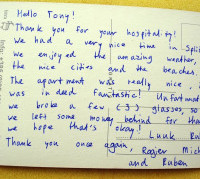 Hello Tony!
Thank you for your hospitality!
We had a very nice time in Split
We enjoyed the amazing weather,
the nice cities and the beaches.
The apartment was really nice, it
was indeed fantastic! Unfortunat
we broke a few (3) glasses so
we left some money behind for th
we hope that's okay!
Thank you once again, Luuk Ru
Rogier Mich
and Ruben